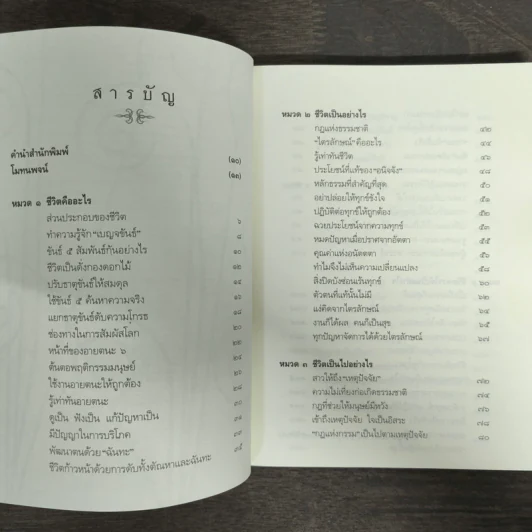 สารบัญ
คำนำสำนักพิมพ์ (๑๐)
โมทนพจน์ (๑๓)
หมวด ๑ ชีวิตคืออะไร
ส่วนประกอบของชีวิต ๖
ทำความรู้จัก“เบญจขันธ์” ๘
ขันธ์ ๕ สัมพันธ์กันอย่างไร ๑๐
ชีวิตเป็นดังกองดอกไม้ ๑๒
ปรับธาตุขันธ์ให้สมดุล ๑๔
ใช้ขันธ์ ๕ ค้นหาความจริง ๑๖
แยกธาตุขันธ์ดับความโกรธ ๑๘
ช่องทางในการสัมผัสโลก ๒๐
หน้าที่ของอายตนะ ๖ ๒๔
ต้นตอพฤติกรรมมนุษย์ ๒๖
ใช้งานอายตนะให้ถูกต้อง ๒๘
รู้เท่าทันอายตนะ ๓๐
ดูเป็น ฟังเป็น แก้ปัญหาเป็น ๓๑
มีปัญญาในการบริโภค ๓๓
พัฒนาตนด้วย“ฉันทะ” ๓๕
ชีวิตก้าวหน้าด้วยการดับทั้งตัณหาและฉันทะ
หมวด ๒ ชีวิตเป็นอย่างไร
กฎแห่งธรรมชาติ ๔๒
“ไตรลักษณ์”คืออะไร ๔๔
รู้เท่าทันชีวิต ๔๖
ประโยชน์ที่แท้ของ“อนิจจัง” ๔๘
หลักธรรมที่สำคัญที่สุด ๕๐
อย่าปล่อยให้ทุกข์ขังใจ ๕๑
ปฏิบัติต่อทุกข์ให้ถูกต้อง ๕๒
ฉวยประโยชน์จากความทุกข์ ๕๓
หมดปัญหาเมื่อปราศจากอัตตา ๕๕
คุณค่าแห่งอนัตตตา ๕๗
ทำไมจึงไม่เห็นความเปลี่ยนแปลง ๕๘
สิ่งปิดบังซ่อนเร้นทุกข์ ๖๐
ตัวตนที่แท้นั้นไม่มี ๖๒
แง่คิดจากไตรลักษณ์ ๖๓
งานก็ได้ผล คนก็เป็นสุข ๖๕
ทุกปัญหาจัดการได้ด้วยไตรลักษณ์ ๖๗
หมวด ๓ ชีวิตเป็นไปอย่างไร
สาวให้ถึง“เหตุปัจจัย” ๗๒
ความไม่เที่ยงก่อเกิดธรรมชาติ ๗๔
กฎที่ช่วยให้มนุษย์มีหวัง ๗๖
เข้าถึงเหตุปัจจัย ใจเป็นอิสระ ๗๘
“กฎแห่งกรรม”เป็นไปตามเหตุปัจจัย ๘๐